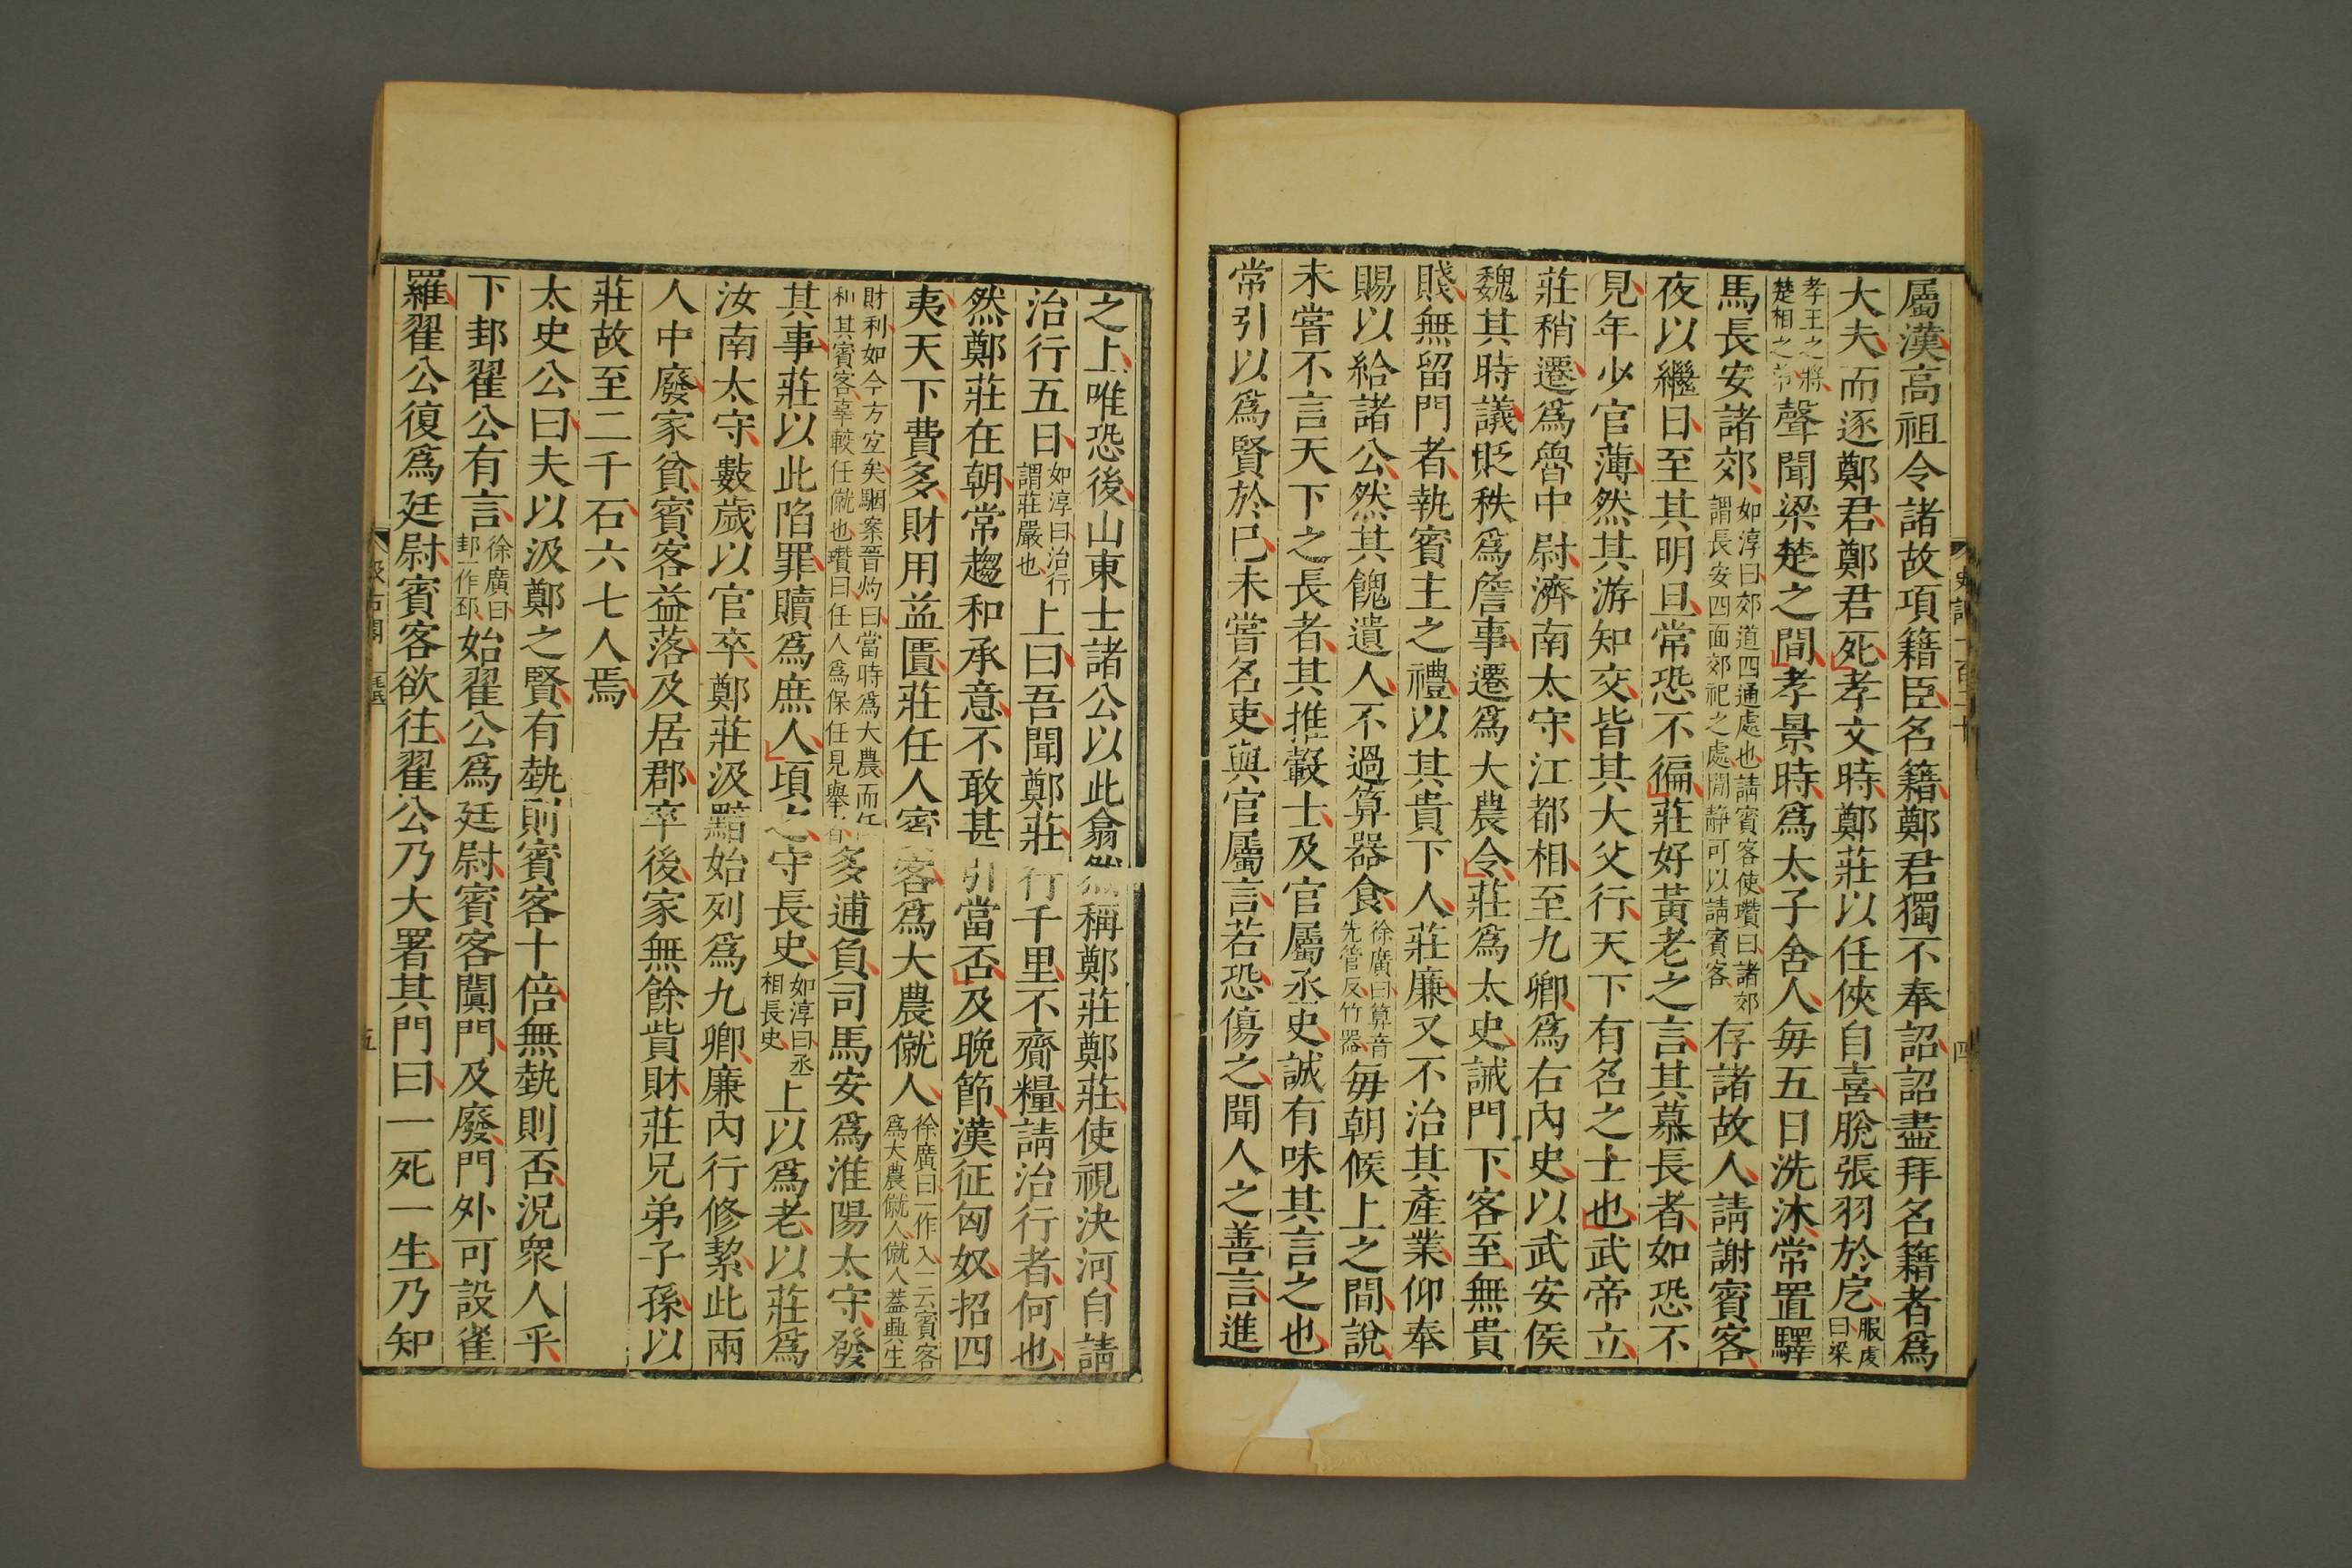 屬漢高祖令諸故項籍臣名籍鄭君獨不奉詔詔盡拜名籍者爲
大夫而逐鄭君鄭君死孝文時鄭莊以任俠自喜脫張羽於戹服虔曰梁
孝王之將楚相之弟聲聞梁楚之間孝景時爲太子舍人每五日洗沐常置驛
馬長安諸郊如淳曰郊道四通處也請賓客使瓚曰諸郊謂長安四面郊祀之處閒靜可以請賓客存諸故人請謝賓客
夜以繼日至其明旦常恐不徧莊好黃老之言其慕長者如恐不
見年少官薄然其游知交皆其大父行天下有名之士也武帝立
莊稍遷爲魯中尉濟南太守江都相至九卿爲右內史以武安侯
魏其時議貶秩爲詹事遷爲大農令莊爲太史誡門下客至無貴
賤無留門者執賓主之禮以其貴下人莊廉又不治其產業仰奉
賜以給諸公然其餽遺人不過算器食徐廣曰算音先管反竹器每朝候上之間說
未嘗不言天下之長者其推轂士及官屬丞史誠有味其言之也
常引以爲賢於已未嘗名吏與官屬言若恐傷之聞人之善言進
史記一百二十
四
之上唯恐後山東士諸公以此翕然稱鄭莊鄭莊使視決河自請
治行五日如淳曰治行謂莊嚴也上曰吾聞鄭莊行千里不齎糧請治行者何也
然鄭莊在朝常趨和承意不敢甚引當否及晚節漢征匈奴招四
夷天下費多財用益匱莊任人賓客爲大農僦人徐廣曰一作入一云賓客爲大農僦人僦人蓋興生
財利如今方宜矣駰案晉灼曰當時爲大農而任利其賓客辜較任僦也瓚曰任人爲保任見舉者多逋負司馬安爲淮陽太守發
其事莊以此陷罪贖爲庶人頃之守長史如淳曰丞相長史上以爲老以莊爲
汝南太守數歲以官卒鄭莊汲黯始列爲九卿廉內行修絜此兩
人中廢家貧賓客益落及居郡卒後家無餘貲財莊兄弟子孫以
莊故至二千石六七人焉
太史公曰夫以汲鄭之賢有埶則賓客十倍無埶則否況衆人乎
下邽翟公有言徐廣曰邽一作邳始翟公爲廷尉賓客闐門及廢門外可設雀
羅翟公復爲廷尉賓客欲往翟公乃大署其門曰一死一生乃知
汲古閣
五